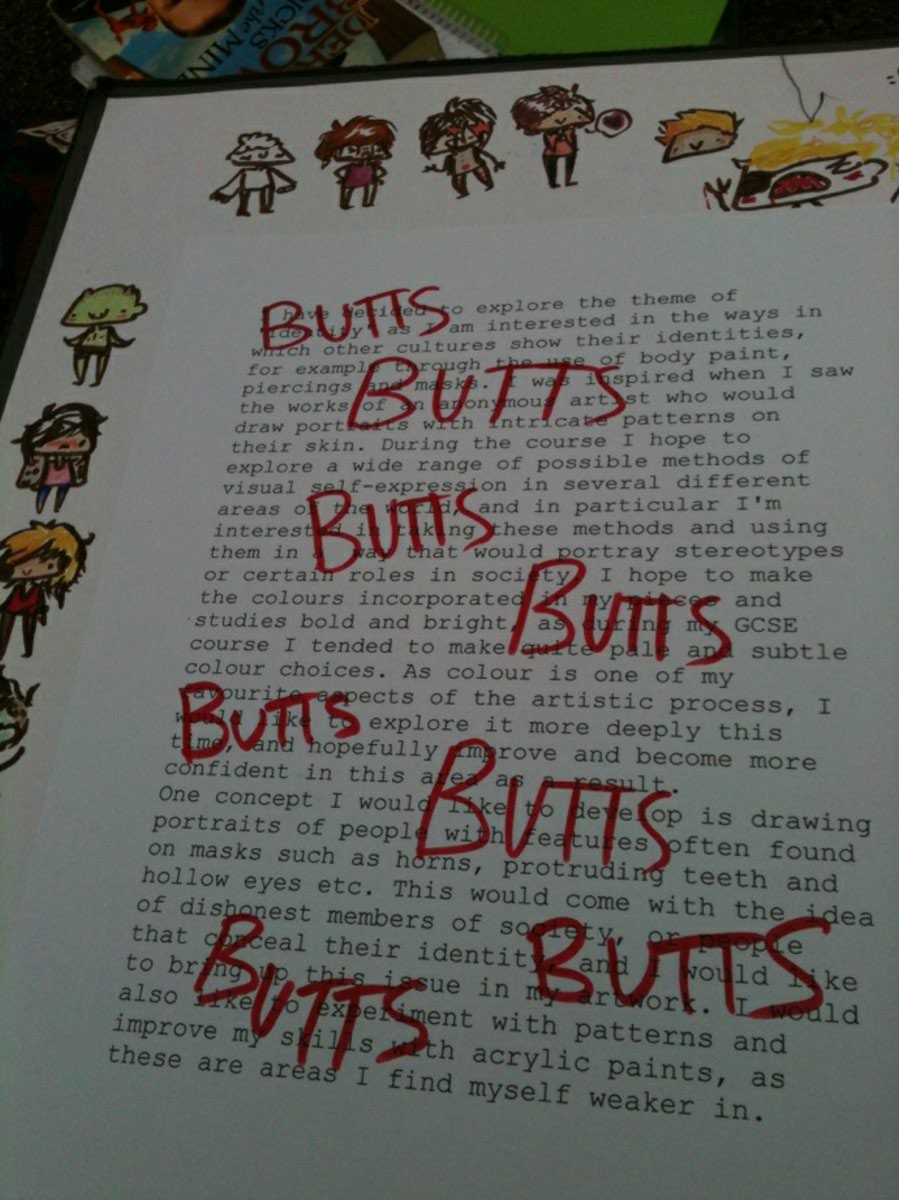 DER
BRO
RICKS
the MIN
I have decided to explore the theme of
'identity' as I am interested in the ways in
which other cultures show their identities,
for example through the use of body paint,
piercings and masks. I was inspired when I saw
the works of an anonymous artist who would
draw portraits with intricate patterns on
their skin. During the course I hope to
explore a wide range of possible methods of
visual self-expression in several different
areas of the world, and in particular I'm
interested in taking these methods and using
them in a way that would portray stereotypes
or certain roles in society. I hope to make
the colours incorporated in my pieces and
studies bold and bright, as during my GCSE
course I tended to make quite pale and subtle
colour choices. As colour is one of my
favourite aspects of the artistic process, I
would like to explore it more deeply this
time, and hopefully improve and become more
confident in this area as a result.
One concept I would like to develop is drawing
portraits of people with features often found
on masks such as horns, protruding teeth and
hollow eyes etc. This would come with the idea
of dishonest members of society, or people
that conceal their identity, and I would like
to bring up this issue in my artwork. I would
also like to experiment with patterns and
improve my skills with acrylic paints, as
these are areas I find myself weaker in.
BUTTS
BUTTS
BUTTS
BUTTS
BUTTS
BUTTS
BUTTS
BUTTS